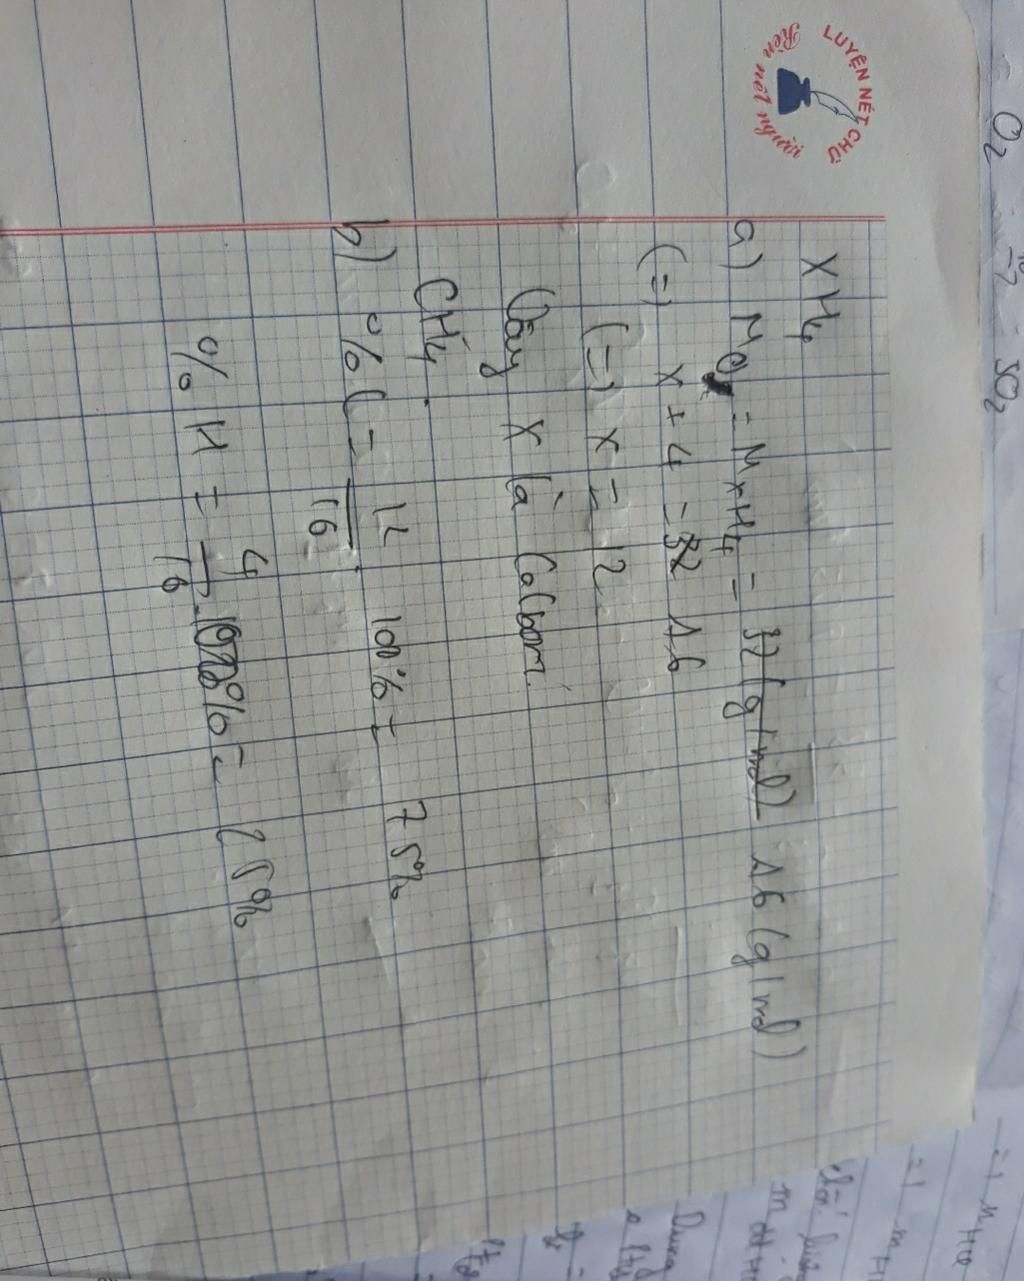 O₂ SO₂
LUYỆN NÉT CHỮ
Rèn nết người
XH₄
a) M_O = M_XH₄ = 32 (g/mol) 16 (g/mol)
(=) X + 4 = 32 16
(=) X = 12
Vậy X là Cacbon.
CH₄.
b) % C = 12/16 . 100% = 75%
% H = 4/16 . 100% = 25%